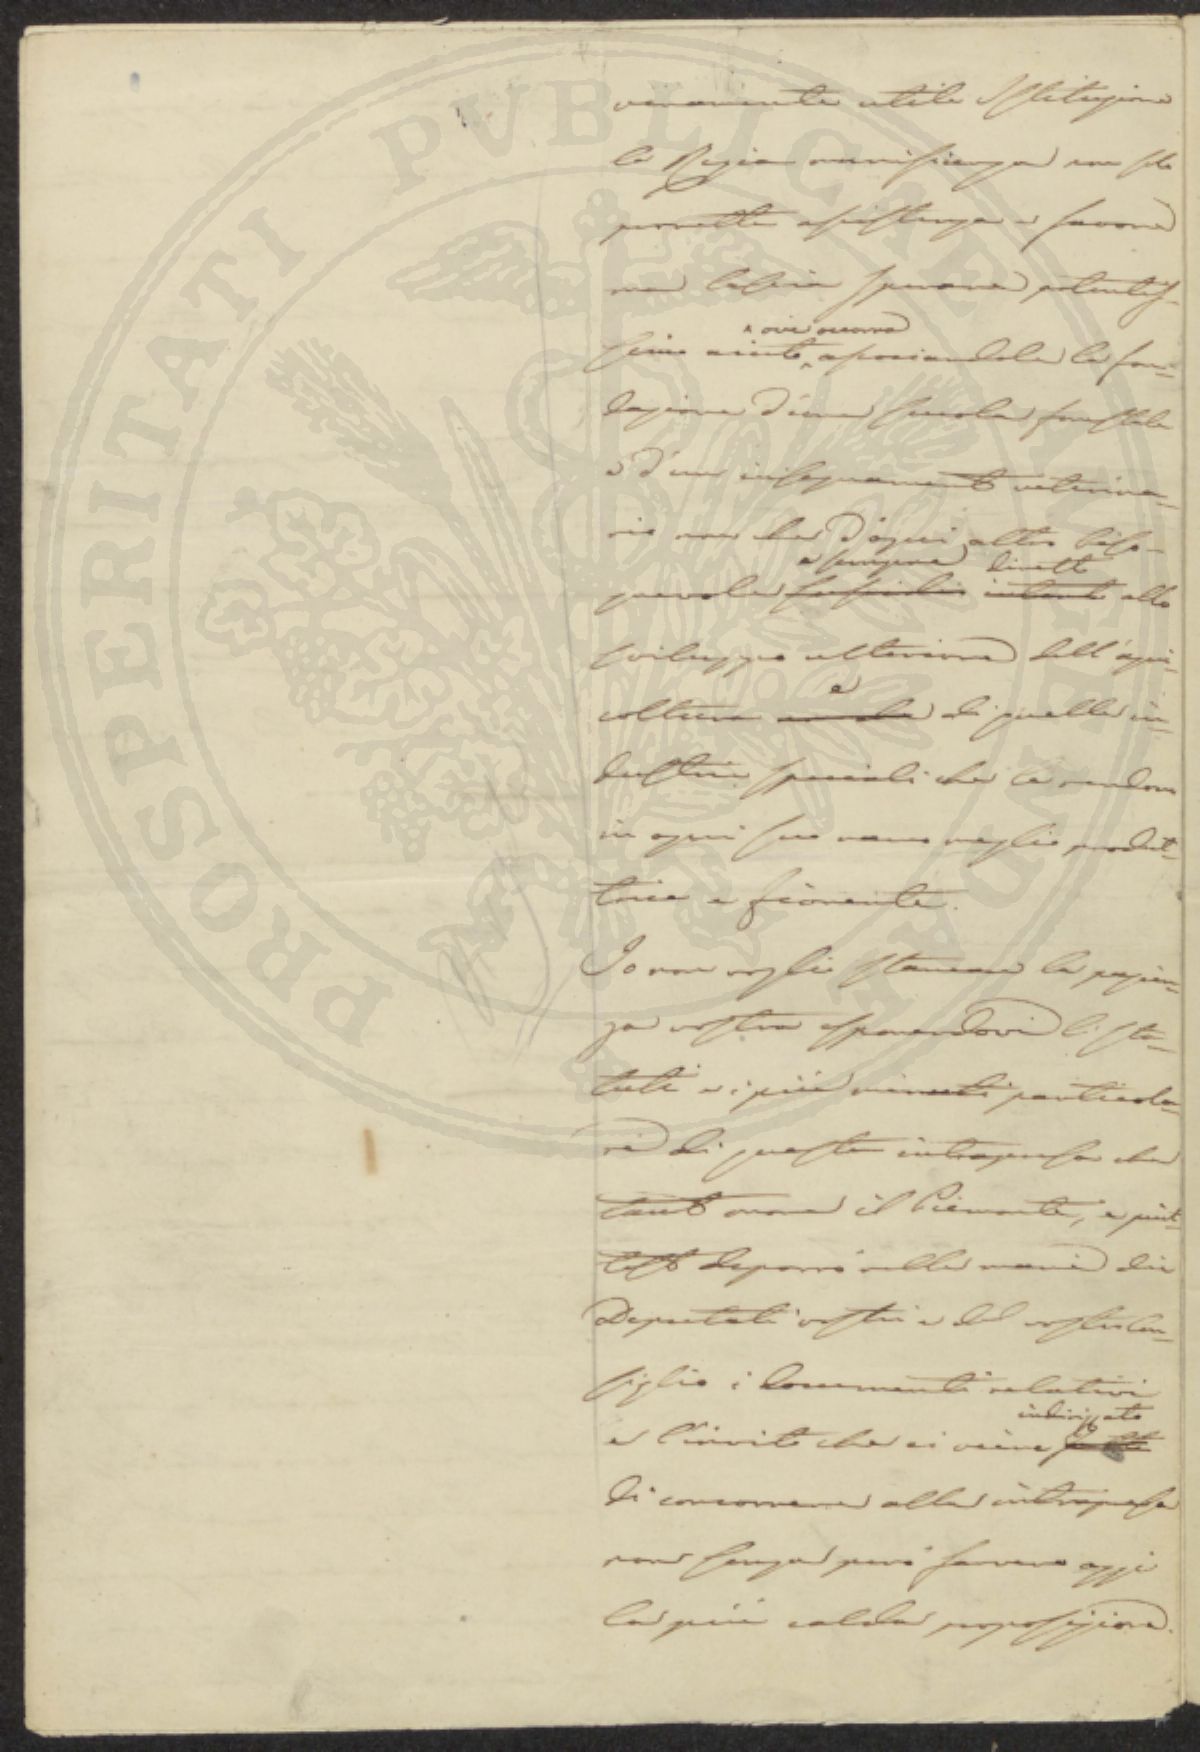 PROSPERITATI PVBLICAE AVGENDAE
veramente utile Istituzione
la Regia munificenza non solo
promette assistenza e favore
ma lascia sperare potentis-
simo aiuto ove occorra associandola la fon-
dazione d'una scuola forestale
e d'un insegnamento veterina-
rio non che d'ogni altro
e sempre diretto
allo
sviluppo ulteriore dell'agri-
coltura e di quelle in-
dustrie speciali che la rendono
in ogni suo ramo meglio produt-
trice e fiorente.
Io non voglio stancare la pazien-
za vostra esponendovi li sta-
tuti e i più minuti particola-
ri di questa intrapresa che
tanto onora il Piemonte, e piut-
tosto deporrò nelle mani dei
Deputati vostri e del vostro Con-
siglio i documenti relativi
e l'invito che ci viene indirizzato
di concorrere alla intrapresa
non senza però farvene oggi
la più calda proposizione.